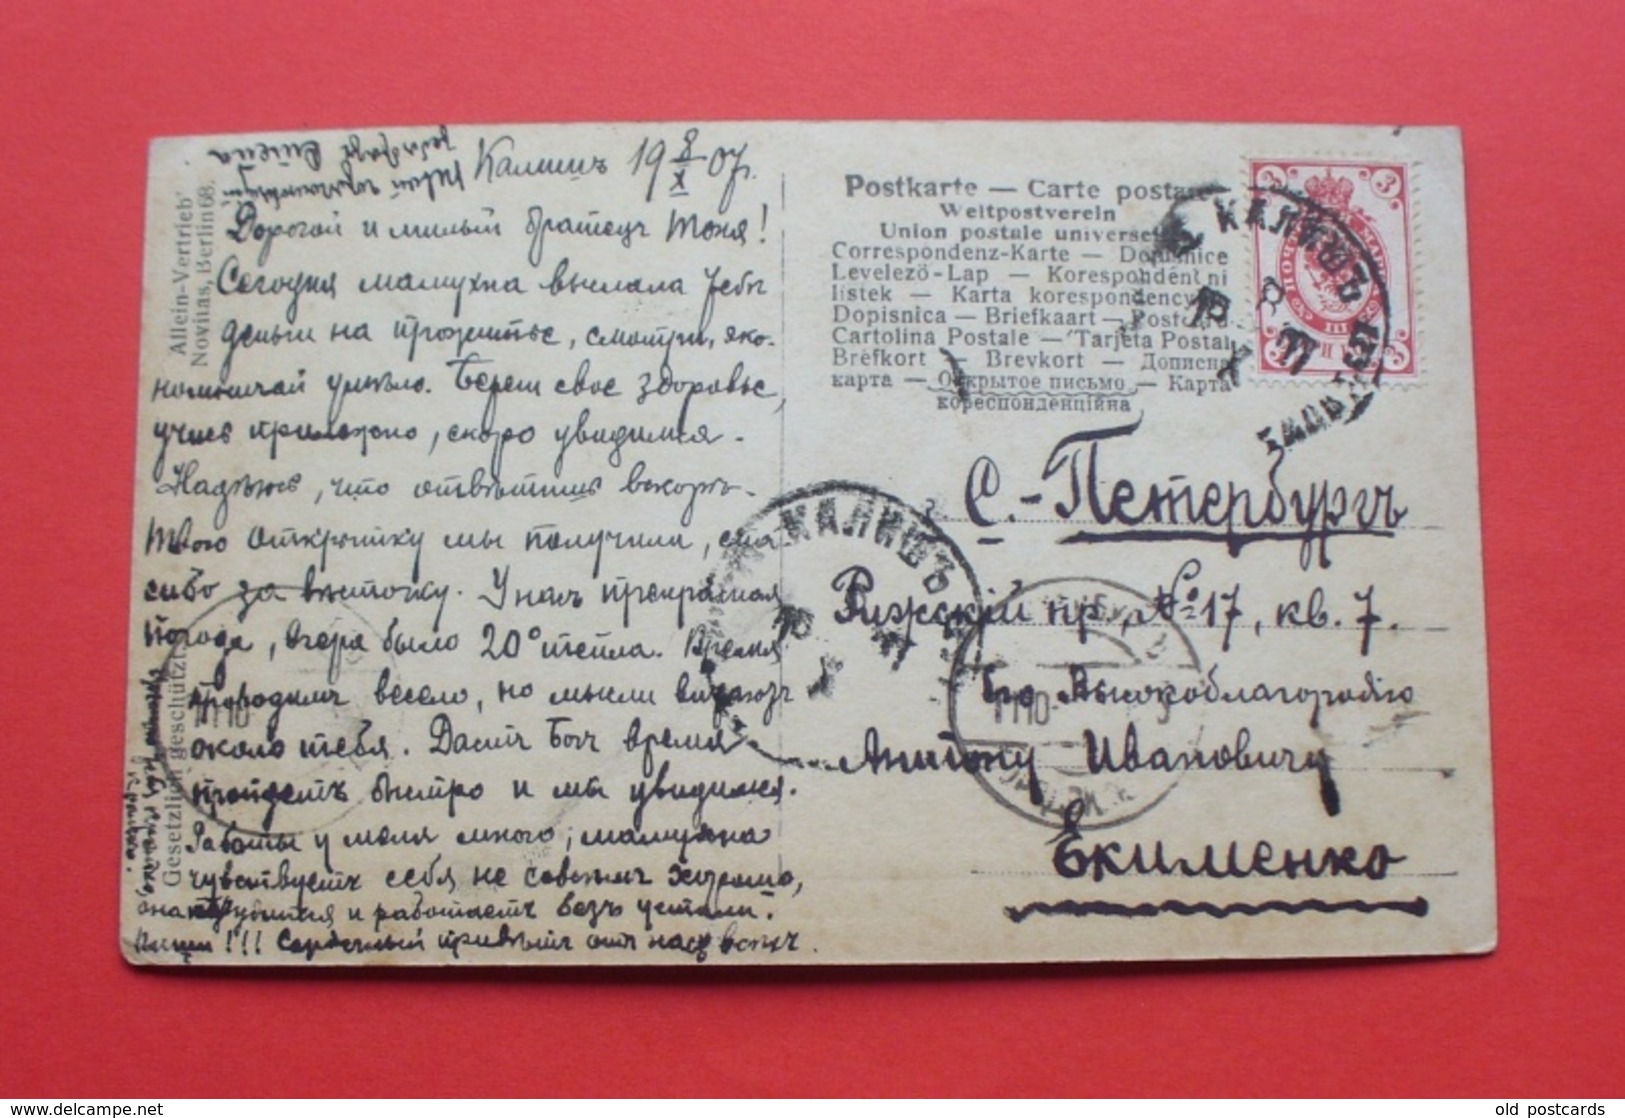 Калишъ 19 8/X 07 г.
Дорогой и милый братецъ Тоня!
Сегодня мамухна выслала Тебѣ
деньги на прожитье, смотри, эко-
номничай умѣло. Береги свое здоровье,
учись прилежно, скоро увидимся.
Надѣюсь, что отвѣтишь вскорѣ.
Твою открытку мы получили, спа
сибо за вѣточку. У насъ прекрасная
погода, вчера было 20° тепла. Время
проводимъ весело, но мысли витаютъ
около тебя. Дастъ Богъ время
пройдетъ быстро и мы увидимся.
Работы у меня много; мамухна
чувствуетъ себя не совсѣмъ хорошо,
она и работаетъ безъ устали.
Пиши!!! Сердечный привѣтъ отъ насъ всѣхъ.
Allein-Vertrieb'
Novitas, Berlin 68.
Gesetzlich geschützt
Postkarte — Carte postale
Weltpostverein
Union postale universelle
Correspondenz-Karte — Dopisnice
Levelező-Lap — Korespondenčni
listek — Karta korespondency
Dopisnica — Briefkaart — Postcard
Cartolina Postale — Tarjeta Postal
Brefkort — Brevkort — Дописна
карта — Открытое письмо — Карта
кореспонденційна
3 3
3 3
КАЛИШЪ
10 X
КАЛИШЪ
10 X
С.-Петербургъ
Рижскій пр., № 17, кв. 7.
Его Высокоблагородію
Антону Ивановичу
Екименко
11 10
11 10
delcampe.net
old_postcards